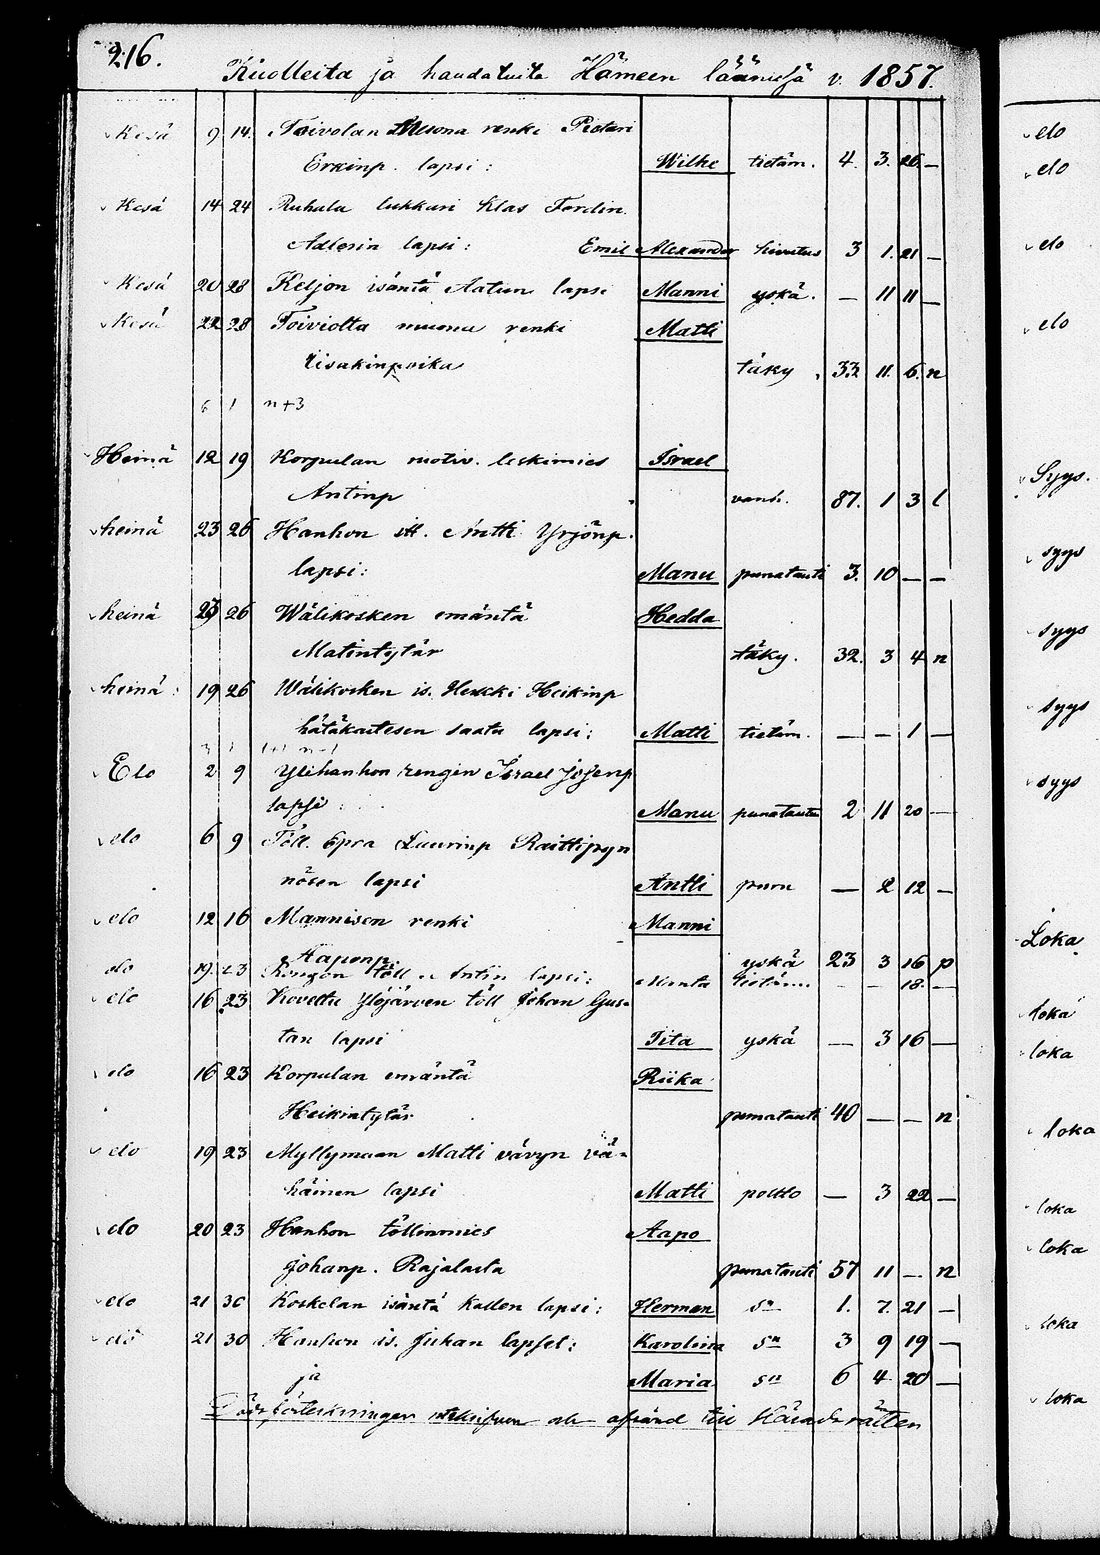 216.
Kuolleita ja haudatuita Hämeen läänissä v. 1857.
Kesä 9 14. Toivolan Muona renki Pietari
Erkinp. lapsi: Wilhe tietäm. 4. 3. 26. —
Kesä 14 24 Ruhala lukkari Klas Ferdin.
Adlerin lapsi: Emil Alexander hivutus 3 1. 21 —
Kesä 20 28 Keljon isäntä Aatun lapsi Manni yskä. — 11 11 —
Kesä 22 28 Toiviolta muona renki Matti
Iisakinpoika täky 33. 11. 6. n
6 1 n+3
Heinä 12 19 Korpulan leskimies Israel
Antinp vanh. 87. 1 3 l
heinä 23 26 Hanhon itl. Antti Yrjönp.
lapsi: Manu punatauti 3. 10 — —
heinä 23 26 Wälikosken emäntä Hedda
Matintytär täky. 32. 3 4 n
heinä 19 26 Wälikosken is. Herkki Heikinp
hätäkastesen saatu lapsi: Matti tietäm. — — 1 —
Elo 2 9 Ylihanhon rengin Israel Josepp
lapsi: Manu punatauti 2 11 20 —
elo 6 9 Töll. Epra Laurinp Raittipyn
nösen lapsi Antti puru — 2 12 —
elo 12 16 Mannisen renki Manni
Aaponp. yskä 23 3 16 p
elo 19. 23 töll. Antin lapsi: Manta tietäm. — — 18. —
elo 16 23 Kovelta Ylöjärven töll Johan Gus=
tan lapsi Tita yskä — 3 16 —
elo 16 23 Korpulan emäntä Riika
Heikintytär punatauti 40 — — n
elo 19 23 Myllymaan Matti vävyn vä=
häinen lapsi Matti poltto — 3 22 —
elo 20 23 Hanhon töllinmies Aapo
Johanp. Rajalasta punatauti 57 11 — n
elo 21 30 Koskelan isäntä Kallen lapsi: Herman sn 1. 7. 21 —
elo 21 30 Hanhon is. Juhan lapset: Karolina sn 3 9 19 —
ja Maria sn 6 4 20 —
afsänd till Häradsrätten
elo
elo
elo
elo
Syys.
syys
syys
syys
syys
Loka
loka
loka
loka
loka
loka
loka
loka